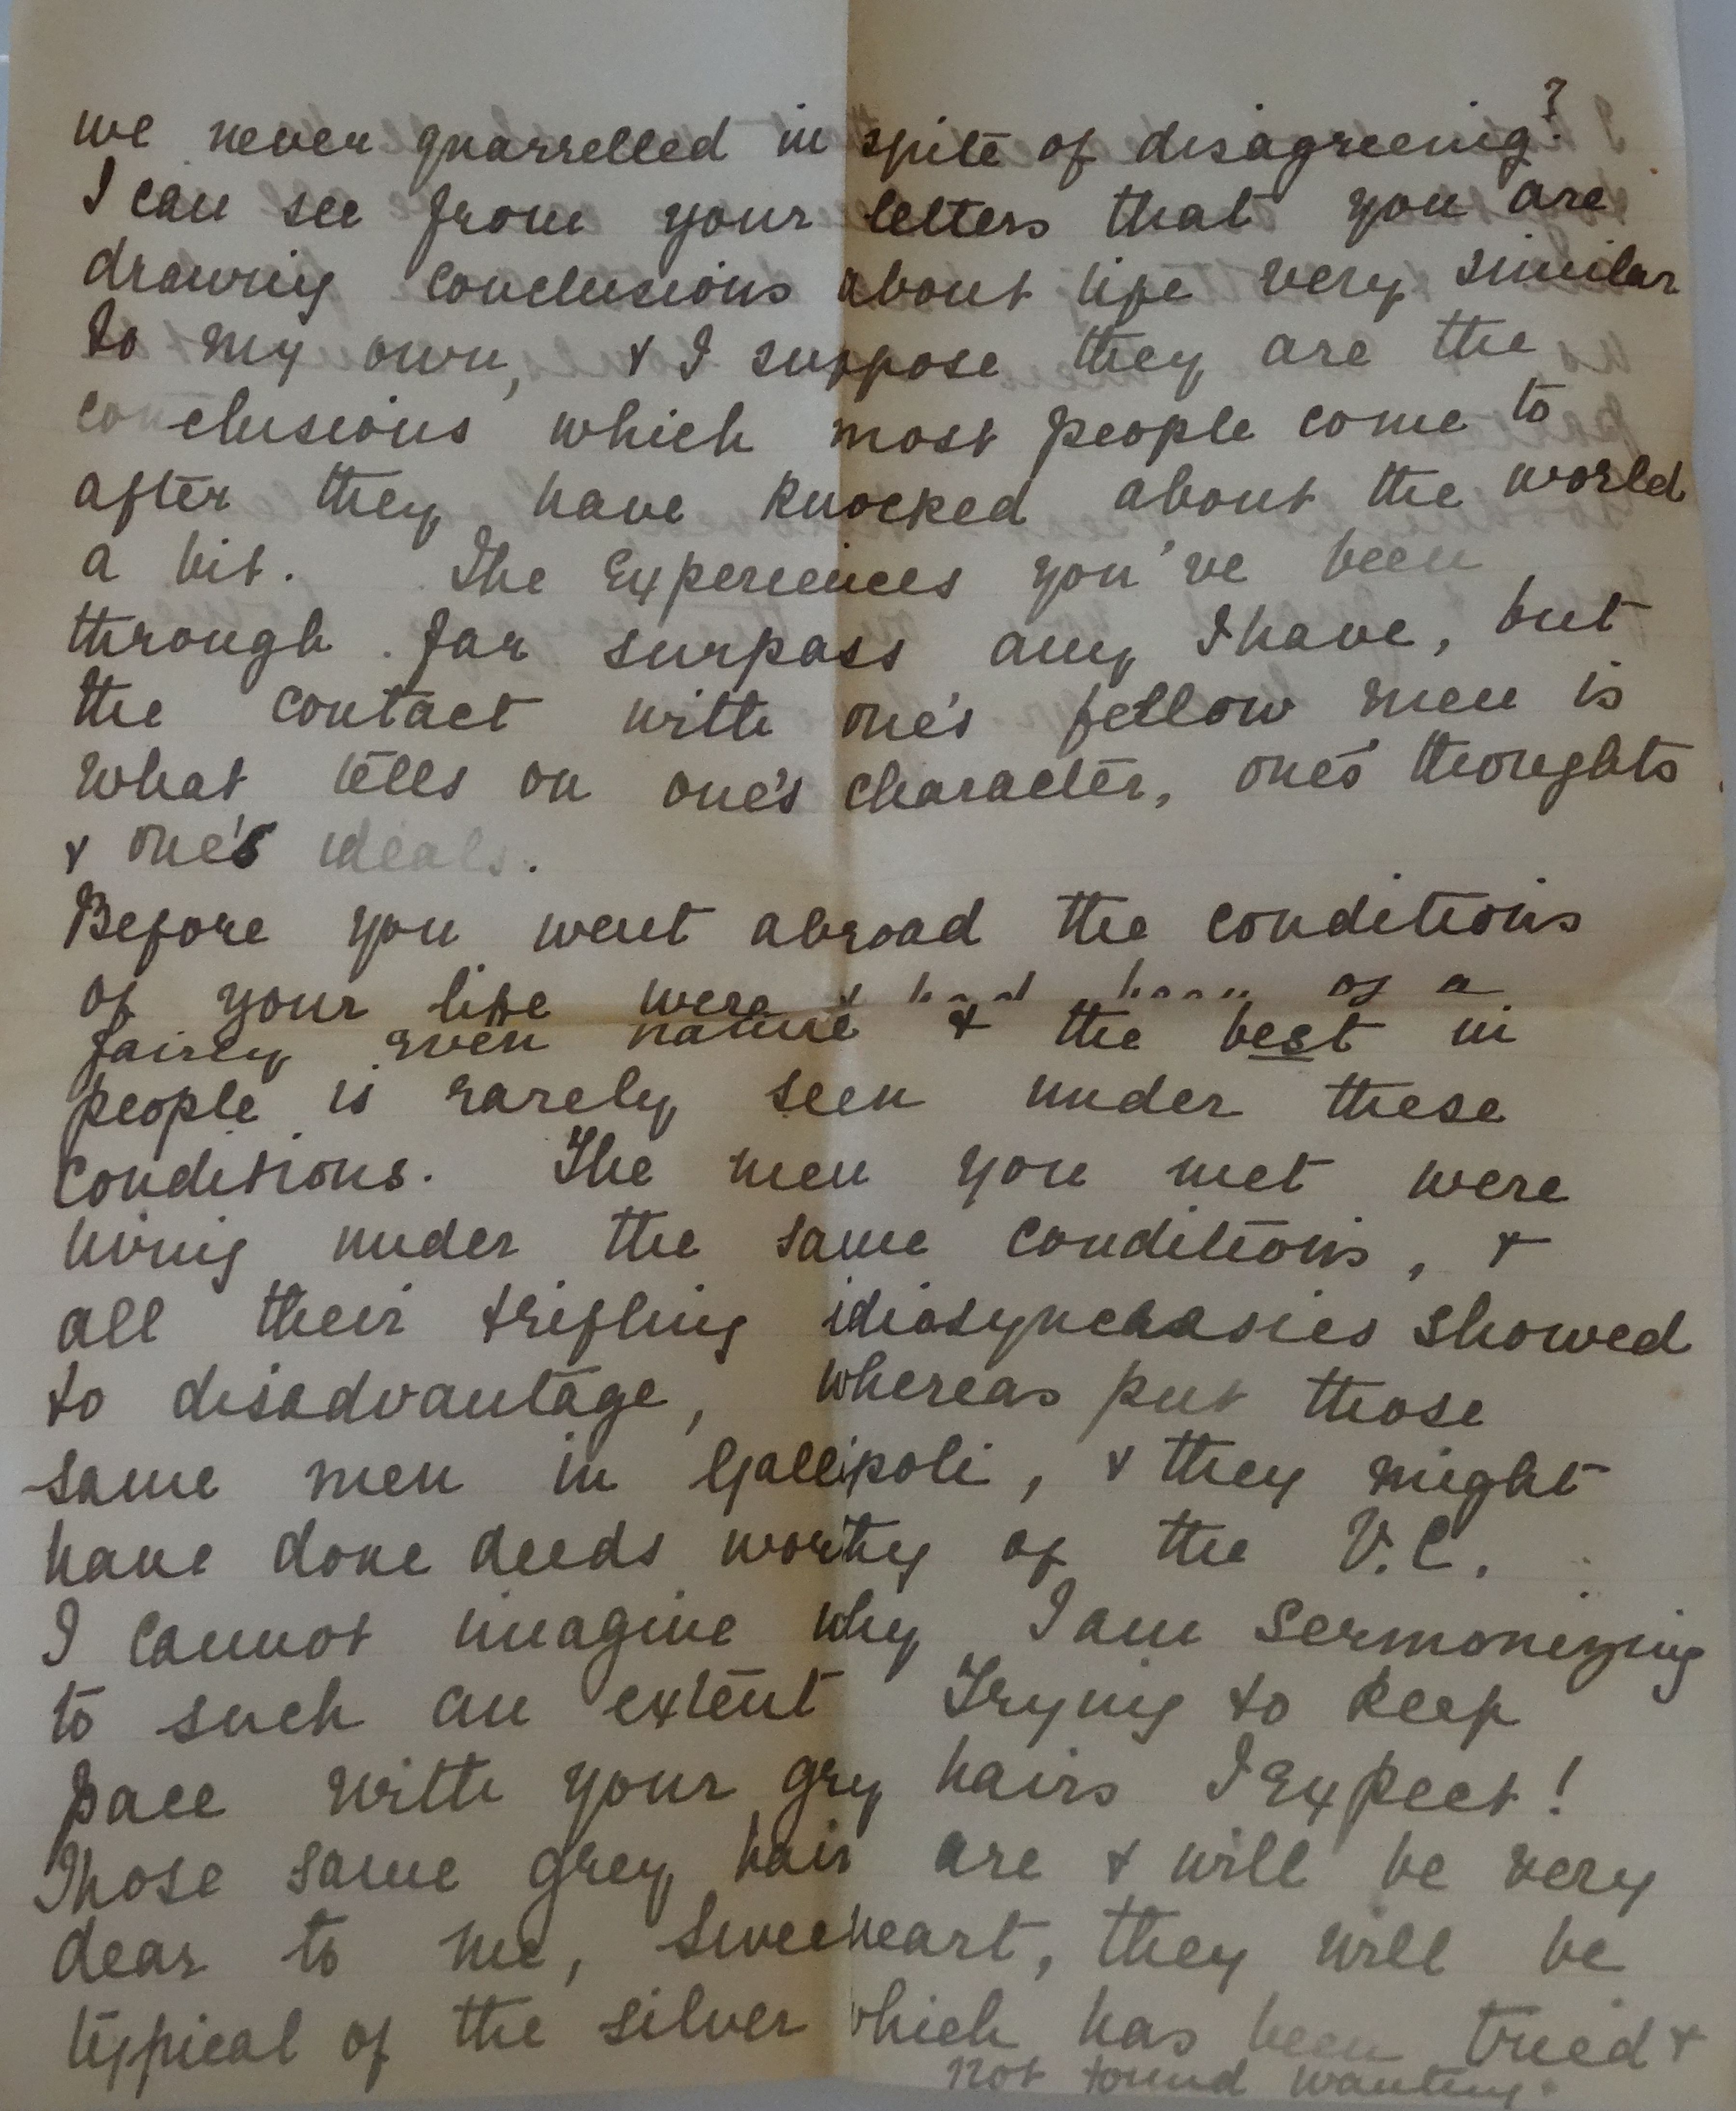 we never quarrelled in spite of disagreeing?
I can see from your letters that you are
drawing conclusions about life very similar
to my own, & I suppose they are the
conclusions which most people come to
after they have knocked about the world
a bit. The Experiences you've been
through far surpass any I have, but
the contact with one's fellow men is
what tells on one's character, one's thoughts
& one's ideals.
Before you went abroad the conditions
of your life were & had been of a
fairly even nature & the best in
people is rarely seen under these
conditions. The men you met were
living under the same conditions, &
all their trifling idiosyncrasies showed
to disadvantage, whereas put those
same men in Gallipoli, & they might
have done deeds worthy of the V.C.
I cannot imagine why I am sermonizing
to such an extent Trying to keep
pace with your grey hairs I Expect!
Those same grey hairs are & will be very
dear to me, sweetheart, they will be
typical of the silver which has been tried &
not found wanting.